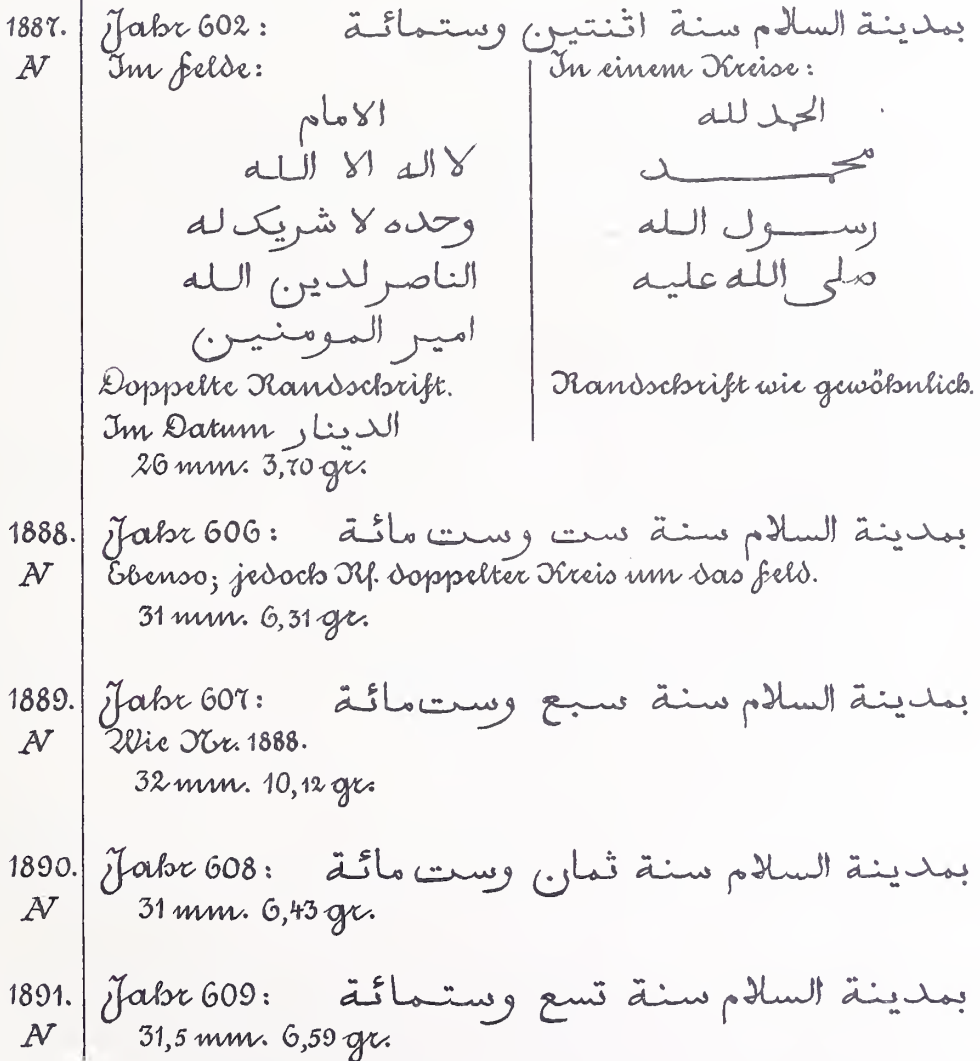 1887. Jahr 602: بمدينة السلام سنة اثنتين وستمائة
AV Im Felde:
الامام
لا اله الا الله
وحده لا شريك له
الناصر لدين الله
امير المومنين
Doppelte Randschrift.
Im Datum الدينار
26 mm. 3,70 gr.
In einem Kreise:
الحمد لله
محمد
رسول الله
صلى الله عليه
Randschrift wie gewöhnlich.
1888. Jahr 606: بمدينة السلام سنة ست وست مائة
AV Ebenso; jedoch Rf. doppelter Kreis um das Feld.
31 mm. 6,31 gr.
1889. Jahr 607: بمدينة السلام سنة سبع وست مائة
AV Wie Nr. 1888.
32 mm. 10,12 gr.
1890. Jahr 608: بمدينة السلام سنة ثمان وست مائة
AV 31 mm. 6,43 gr.
1891. Jahr 609: بمدينة السلام سنة تسع وستمائة
AV 31,5 mm. 6,59 gr.